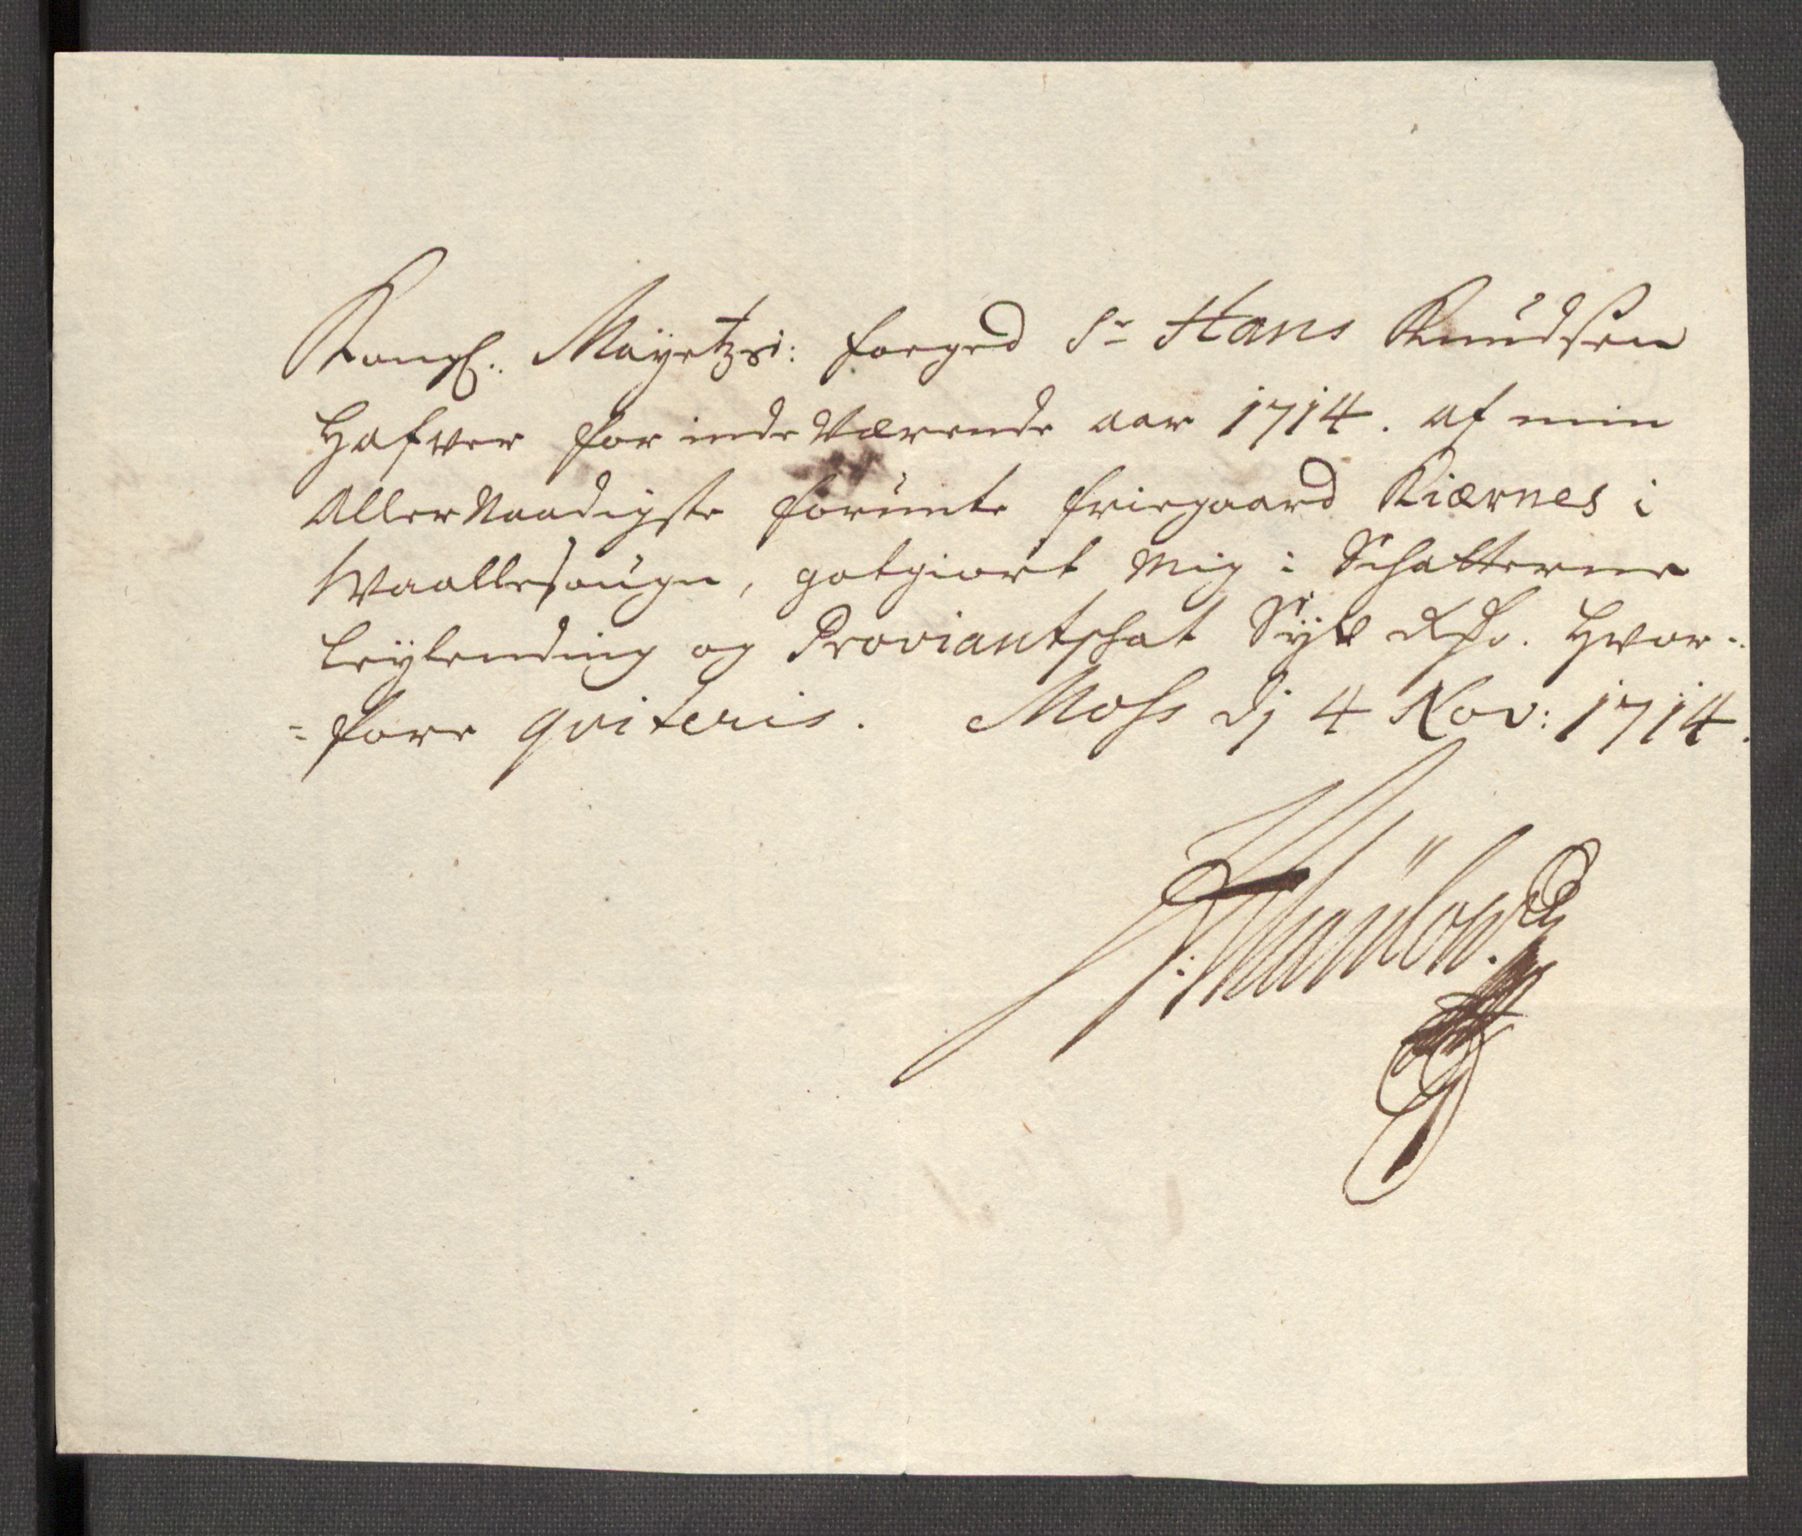 Kongl. Mayetzsi: foeged Sr Hans Knudsen
Hafver for indeværende aar 1714. af min
Allernaadigste forunte friegaard Kiærnes i
Waallesougn, gotgiort mig i Schatterne
Leylending og Proviantschat Syv Rdr. Hvor-
=fore qviteris. Moss dj 4 Nov: 1714.